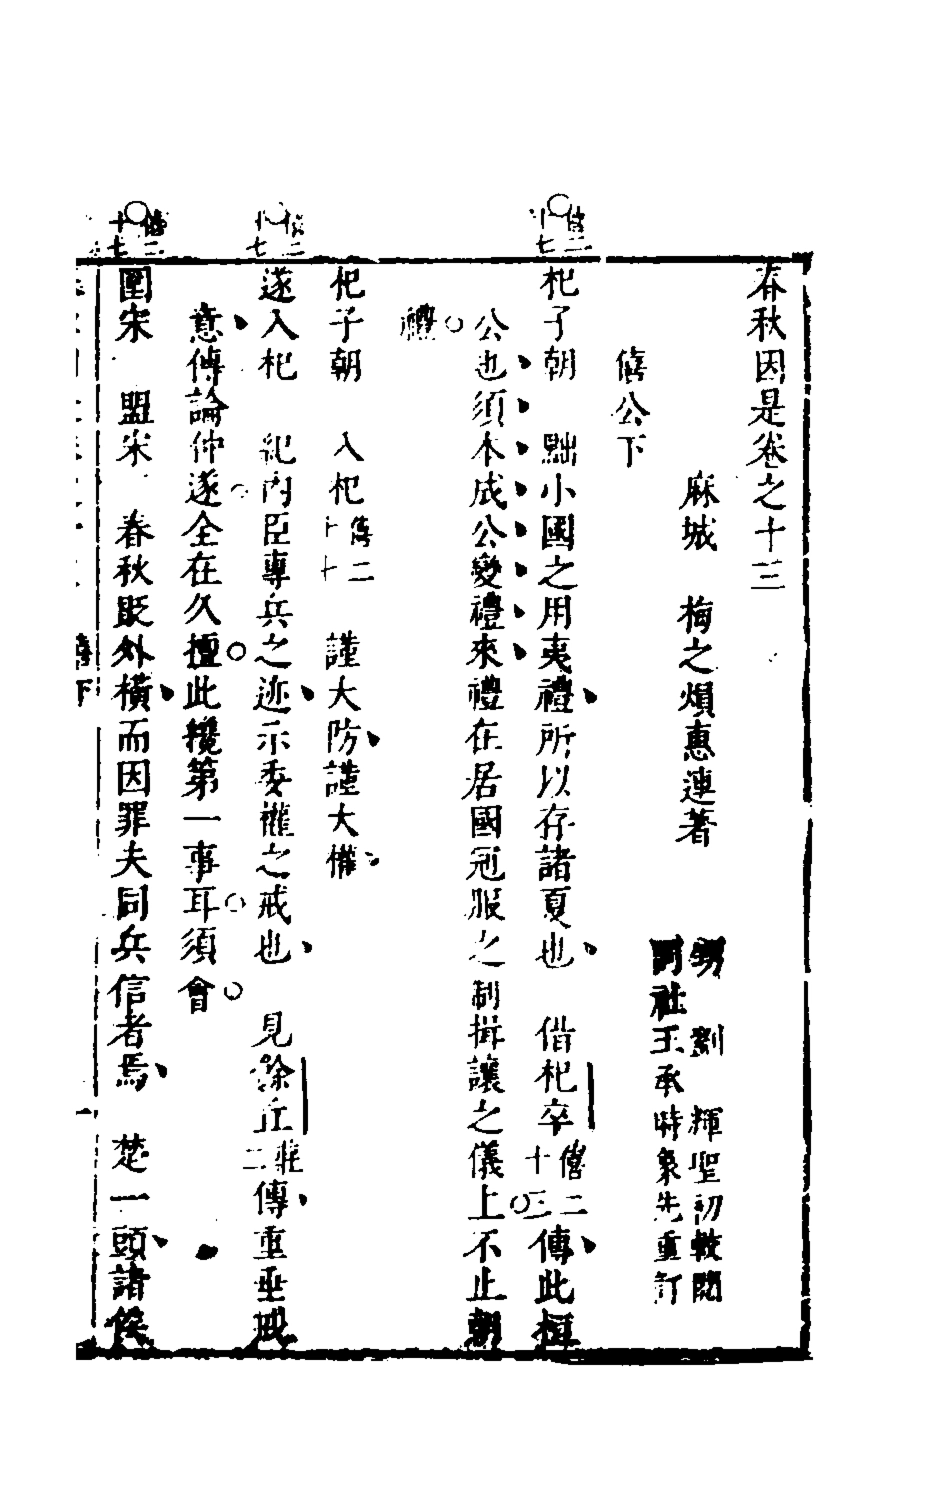 春秋因是卷之十三
麻城　梅之熉惠連著
甥　劉　輝聖初較閱
同社王承時象先重訂
僖公下
僖二十七
杞子朝　黜小國之用夷禮所以存諸夏也　借杞卒僖二十三傳此桓
公也須本成公變禮來禮在居國冠服之制揖讓之儀上不止朝
禮
杞子朝　入杞僖二十七　謹大防謹大權
僖二十七
遂入杞　紀內臣專兵之迹示委權之戒也　見餘丘莊二傳重垂戒
意傳論仲遂全在久擅此纔第一事耳須會
僖二十七
圍宋　盟宋　春秋貶外橫而因罪夫同兵信者焉　楚一頭諸侯
僖下
一